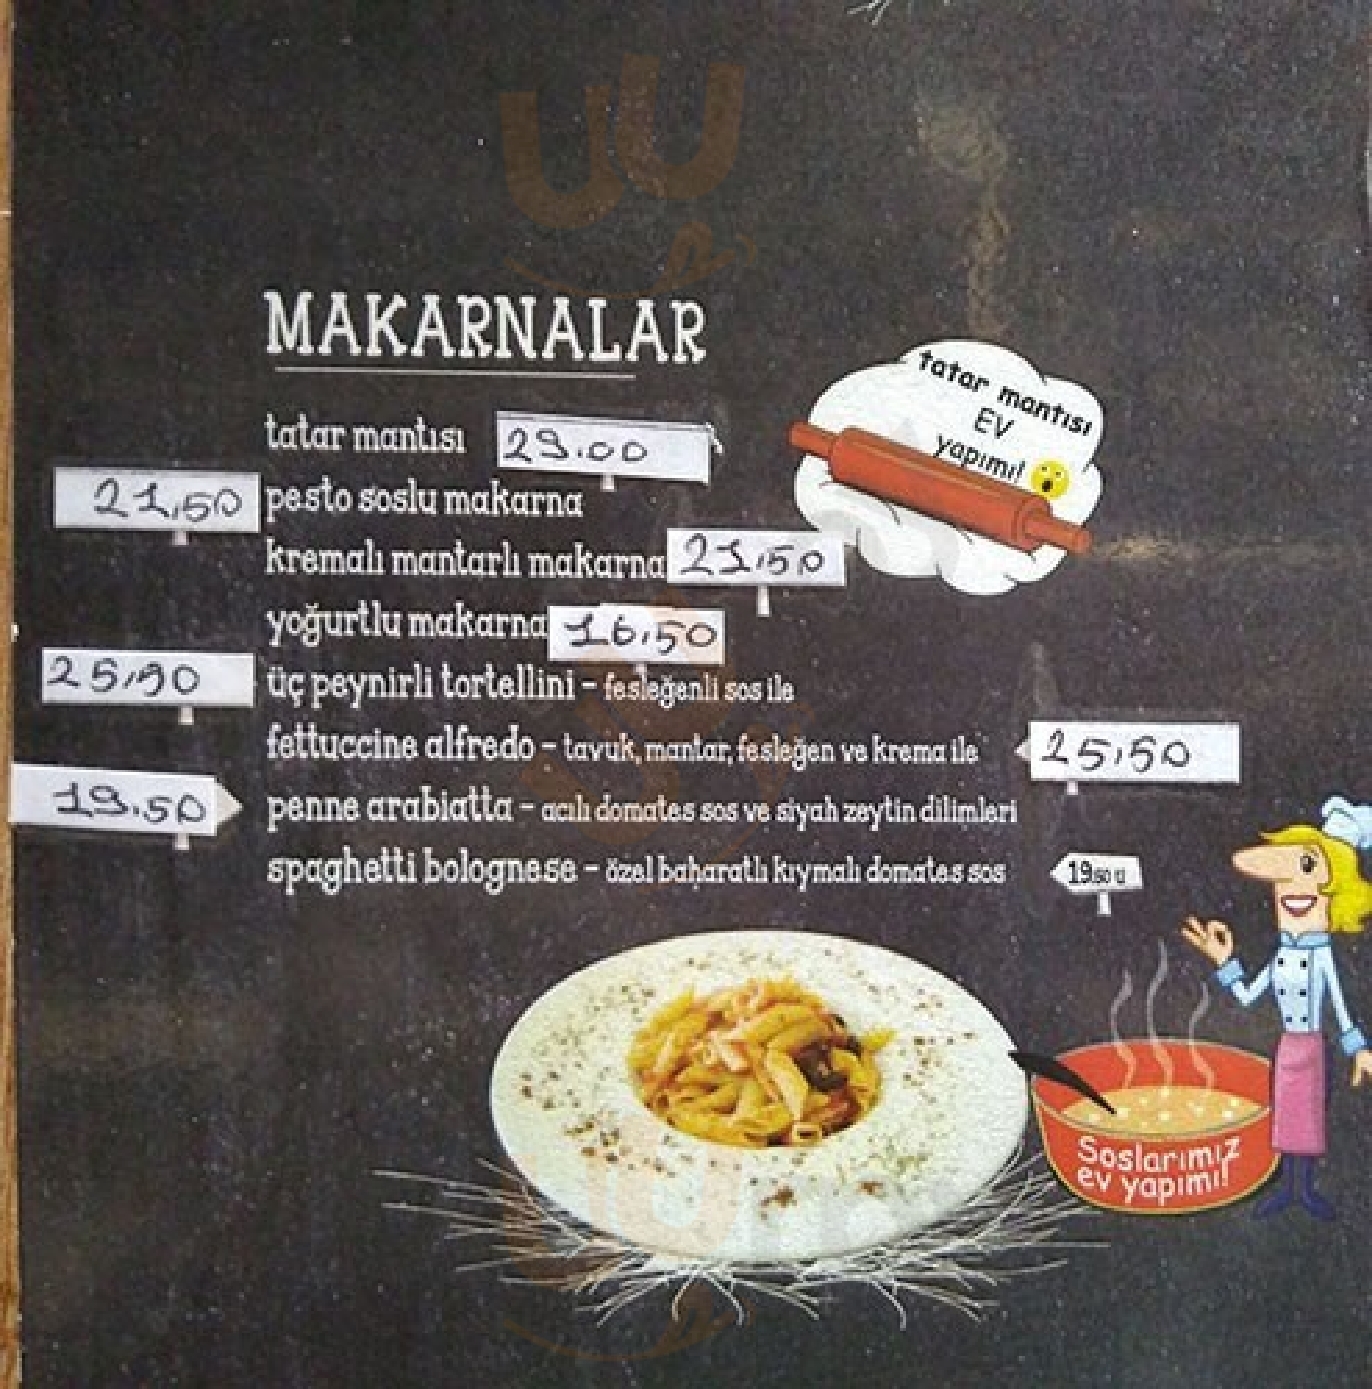 MAKARNALAR
tatar mantısı 29.00
21,50 pesto soslu makarna
kremalı mantarlı makarna 21,50
yoğurtlu makarna 16,50
25,90 üç peynirli tortellini - fesleğenli sos ile
fettuccine alfredo - tavuk, mantar, fesleğen ve krema ile 25,50
19.50 penne arabiatta - acılı domates sos ve siyah zeytin dilimleri
spaghetti bolognese - özel baharatlı kıymalı domates sos 19.50
tatar mantısı
EV
yapımı!
Soslarımız
ev yapımı!